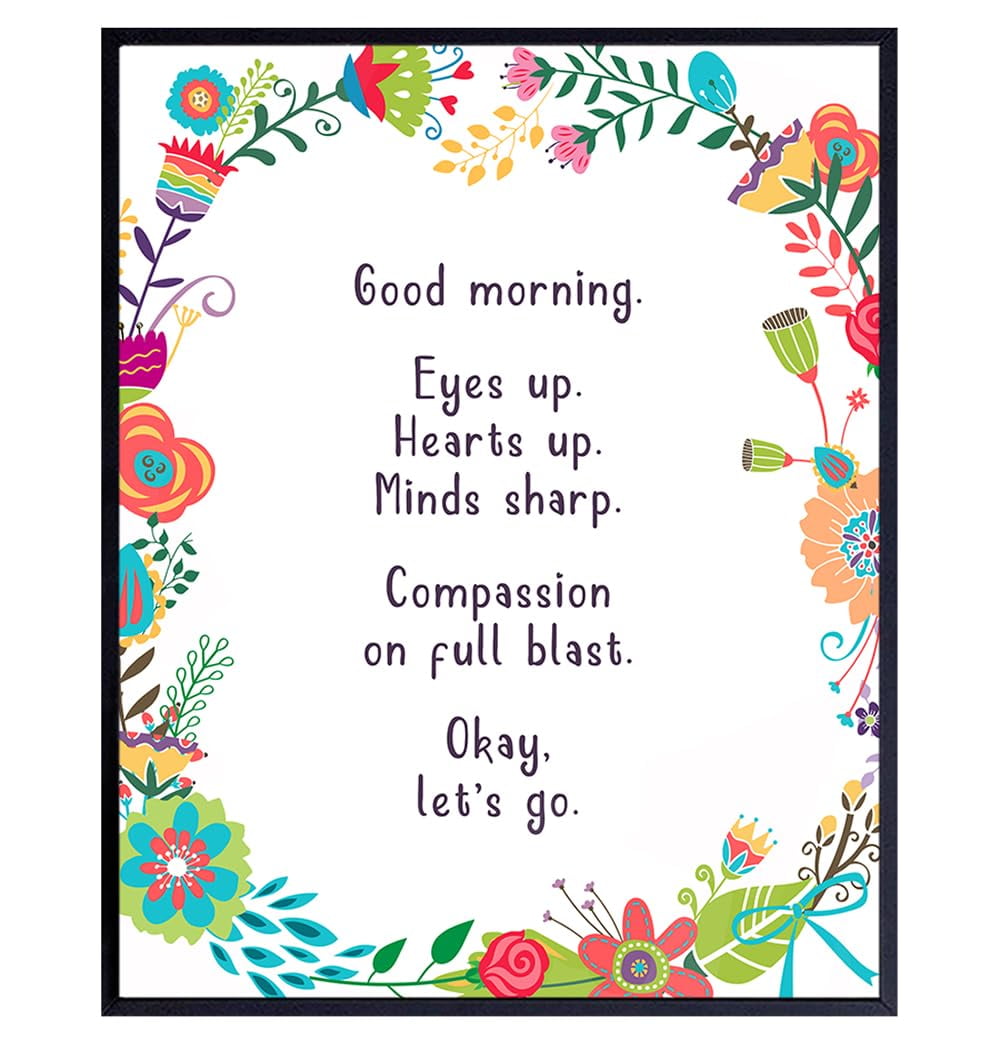 Good morning.
Eyes up.
Hearts up.
Minds sharp.
Compassion
on full blast.
Okay,
let's go.